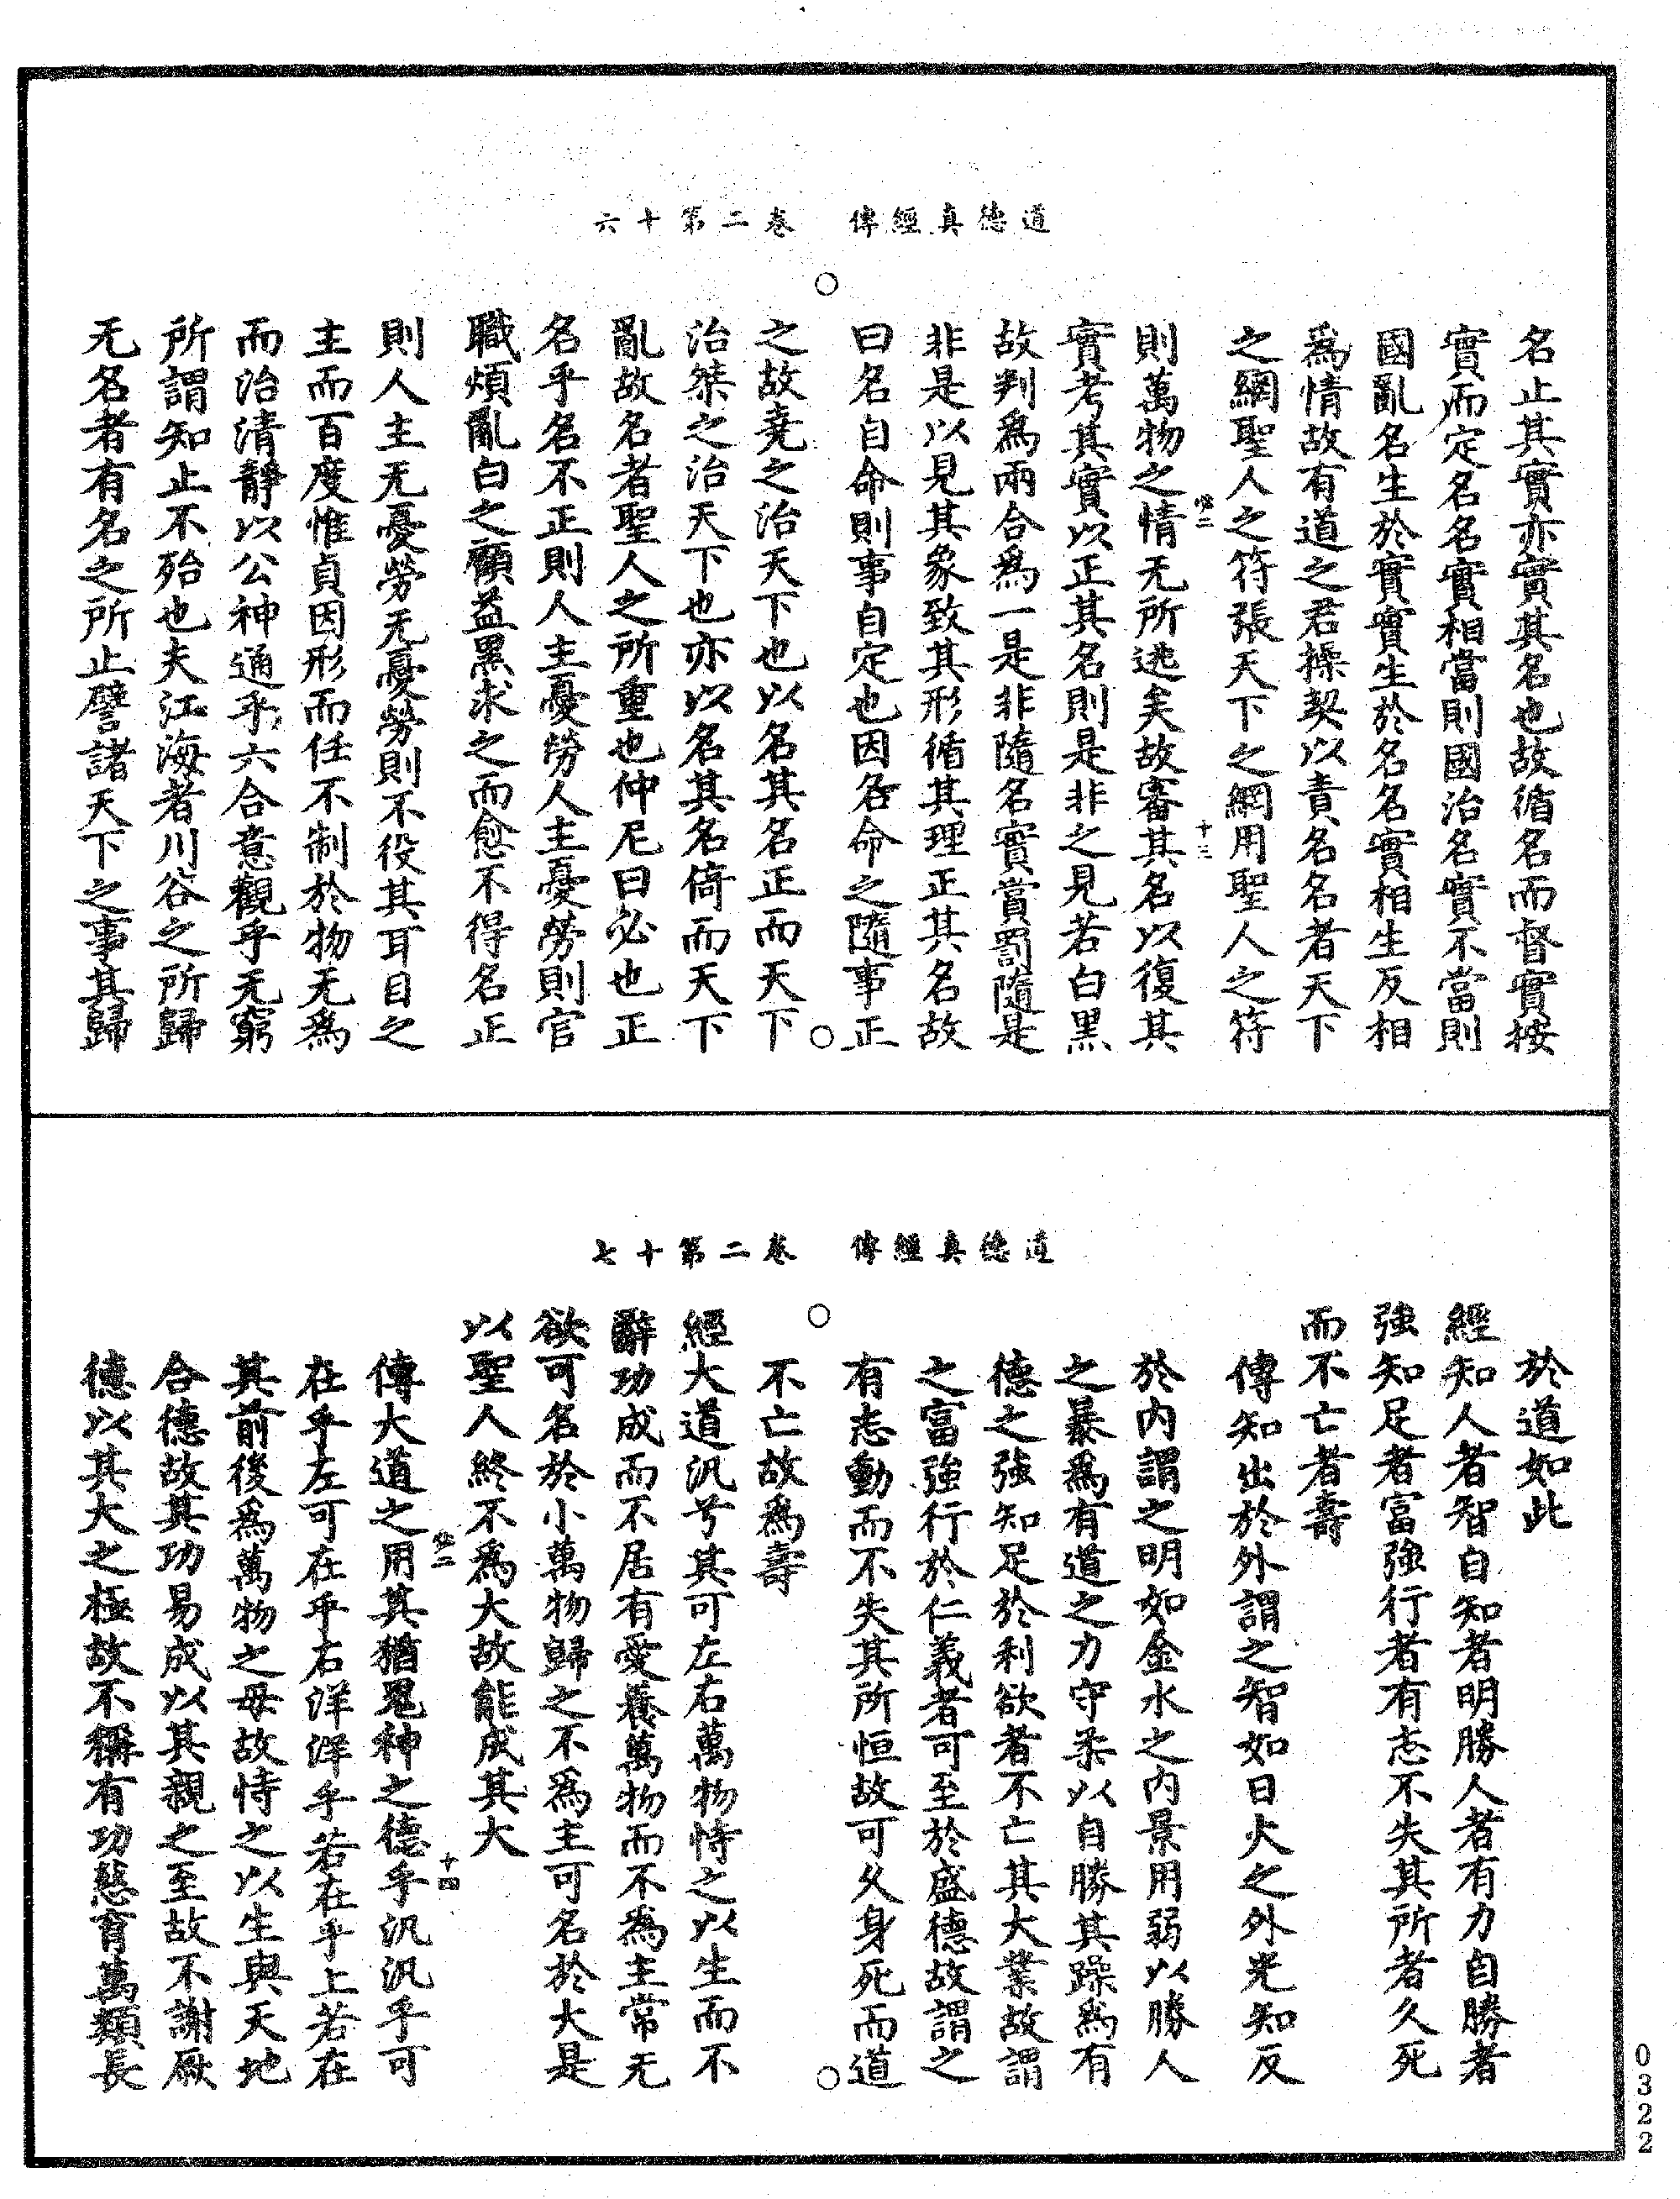 道德真經傳　卷二第十六
名止其實亦實其名也故循名而督實按
實而定名名實相當則國治名實不當則
國亂名生於實實生於名名實相生反相
爲情故有道之君操契以責名名者天下
之網聖人之符張天下之網用聖人之符
十三
則萬物之情无所逃矣故審其名以復其
實考其實以正其名則是非之見若白黑
故判爲兩合爲一是非隨名實賞罰隨是
非是以見其象致其形循其理正其名故
曰名自命則事自定也因名命之隨事正
之故堯之治天下也以名其名正而天下
治桀之治天下也亦以名其名倚而天下
亂故名者聖人之所重也仲尼曰必也正
名乎名不正則人主憂勞人主憂勞則官
職煩亂白之顧益黑求之而愈不得名正
則人主无憂勞无憂勞則不役其耳目之
主而百度惟貞因形而任不制於物无爲
而治清靜以公神通乎六合意觀乎无窮
所謂知止不殆也夫江海者川谷之所歸
无名者有名之所止譬諸天下之事其歸
道德真經傳　卷二第十七
於道如此
經知人者智自知者明勝人者有力自勝者
強知足者富強行者有志不失其所者久死
而不亡者壽
傳知出於外謂之智如日火之外光知反
於內謂之明如金水之內景用弱以勝人
之暴爲有道之力守柔以自勝其躁爲有
德之強知足於利欲者不亡其大業故謂
之富強行於仁義者可至於盛德故謂之
有志動而不失其所恒故可久身死而道
不亡故爲壽
經大道汎兮其可左右萬物恃之以生而不
辭功成而不居有愛養萬物而不爲主常无
欲可名於小萬物歸之不爲主可名於大是
以聖人終不爲大故能成其大
十四
傳大道之用其猶鬼神之德乎汎汎乎可
在乎左可在乎右洋洋乎若在乎上若在
其前後爲萬物之母故恃之以生與天地
合德故其功易成以其親之至故不謝厥
德以其大之極故不稱有功慈育萬類長
0322